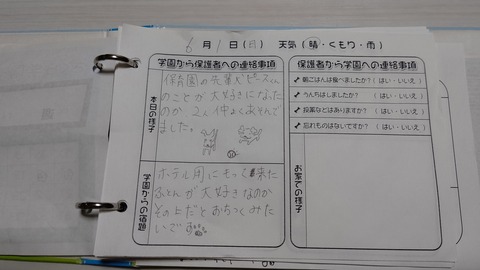 6月1日(日) 天気(晴・くもり・雨)
学園から保護者への連絡事項
本日の様子
保育園の先輩ビビースくん
のことが大好きになった
のか 2人仲よくあそんで
ました。
学園からの宿題
ホテル用にもって来た
おふとんが大好きなのか
その上だとおちつくみた
いです
保護者から学園への連絡事項
朝ごはんは食べましたか?(はい・いいえ)
うんちはしましたか?(はい・いいえ)
投薬などはありますか?(はい・いいえ)
忘れものはないですか?(はい・いいえ)
お家での様子